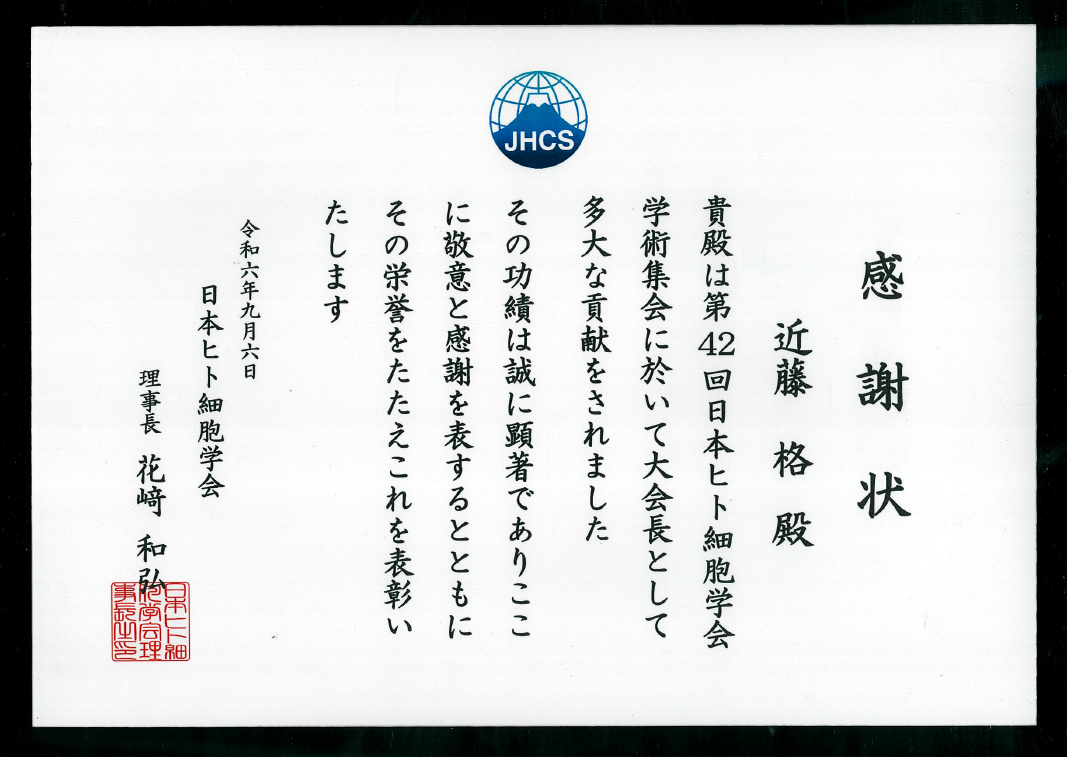 JHCS
感謝状
近藤 格 殿
貴殿は第42回日本ヒト細胞学会
学術集会に於いて大会長として
多大な貢献をされました
その功績は誠に顕著でありここ
に敬意と感謝を表するとともに
その栄誉をたたえこれを表彰い
たします
令和六年九月六日
日本ヒト細胞学会
理事長 花﨑 和弘
日本ヒト細
胞学会理
事長之印